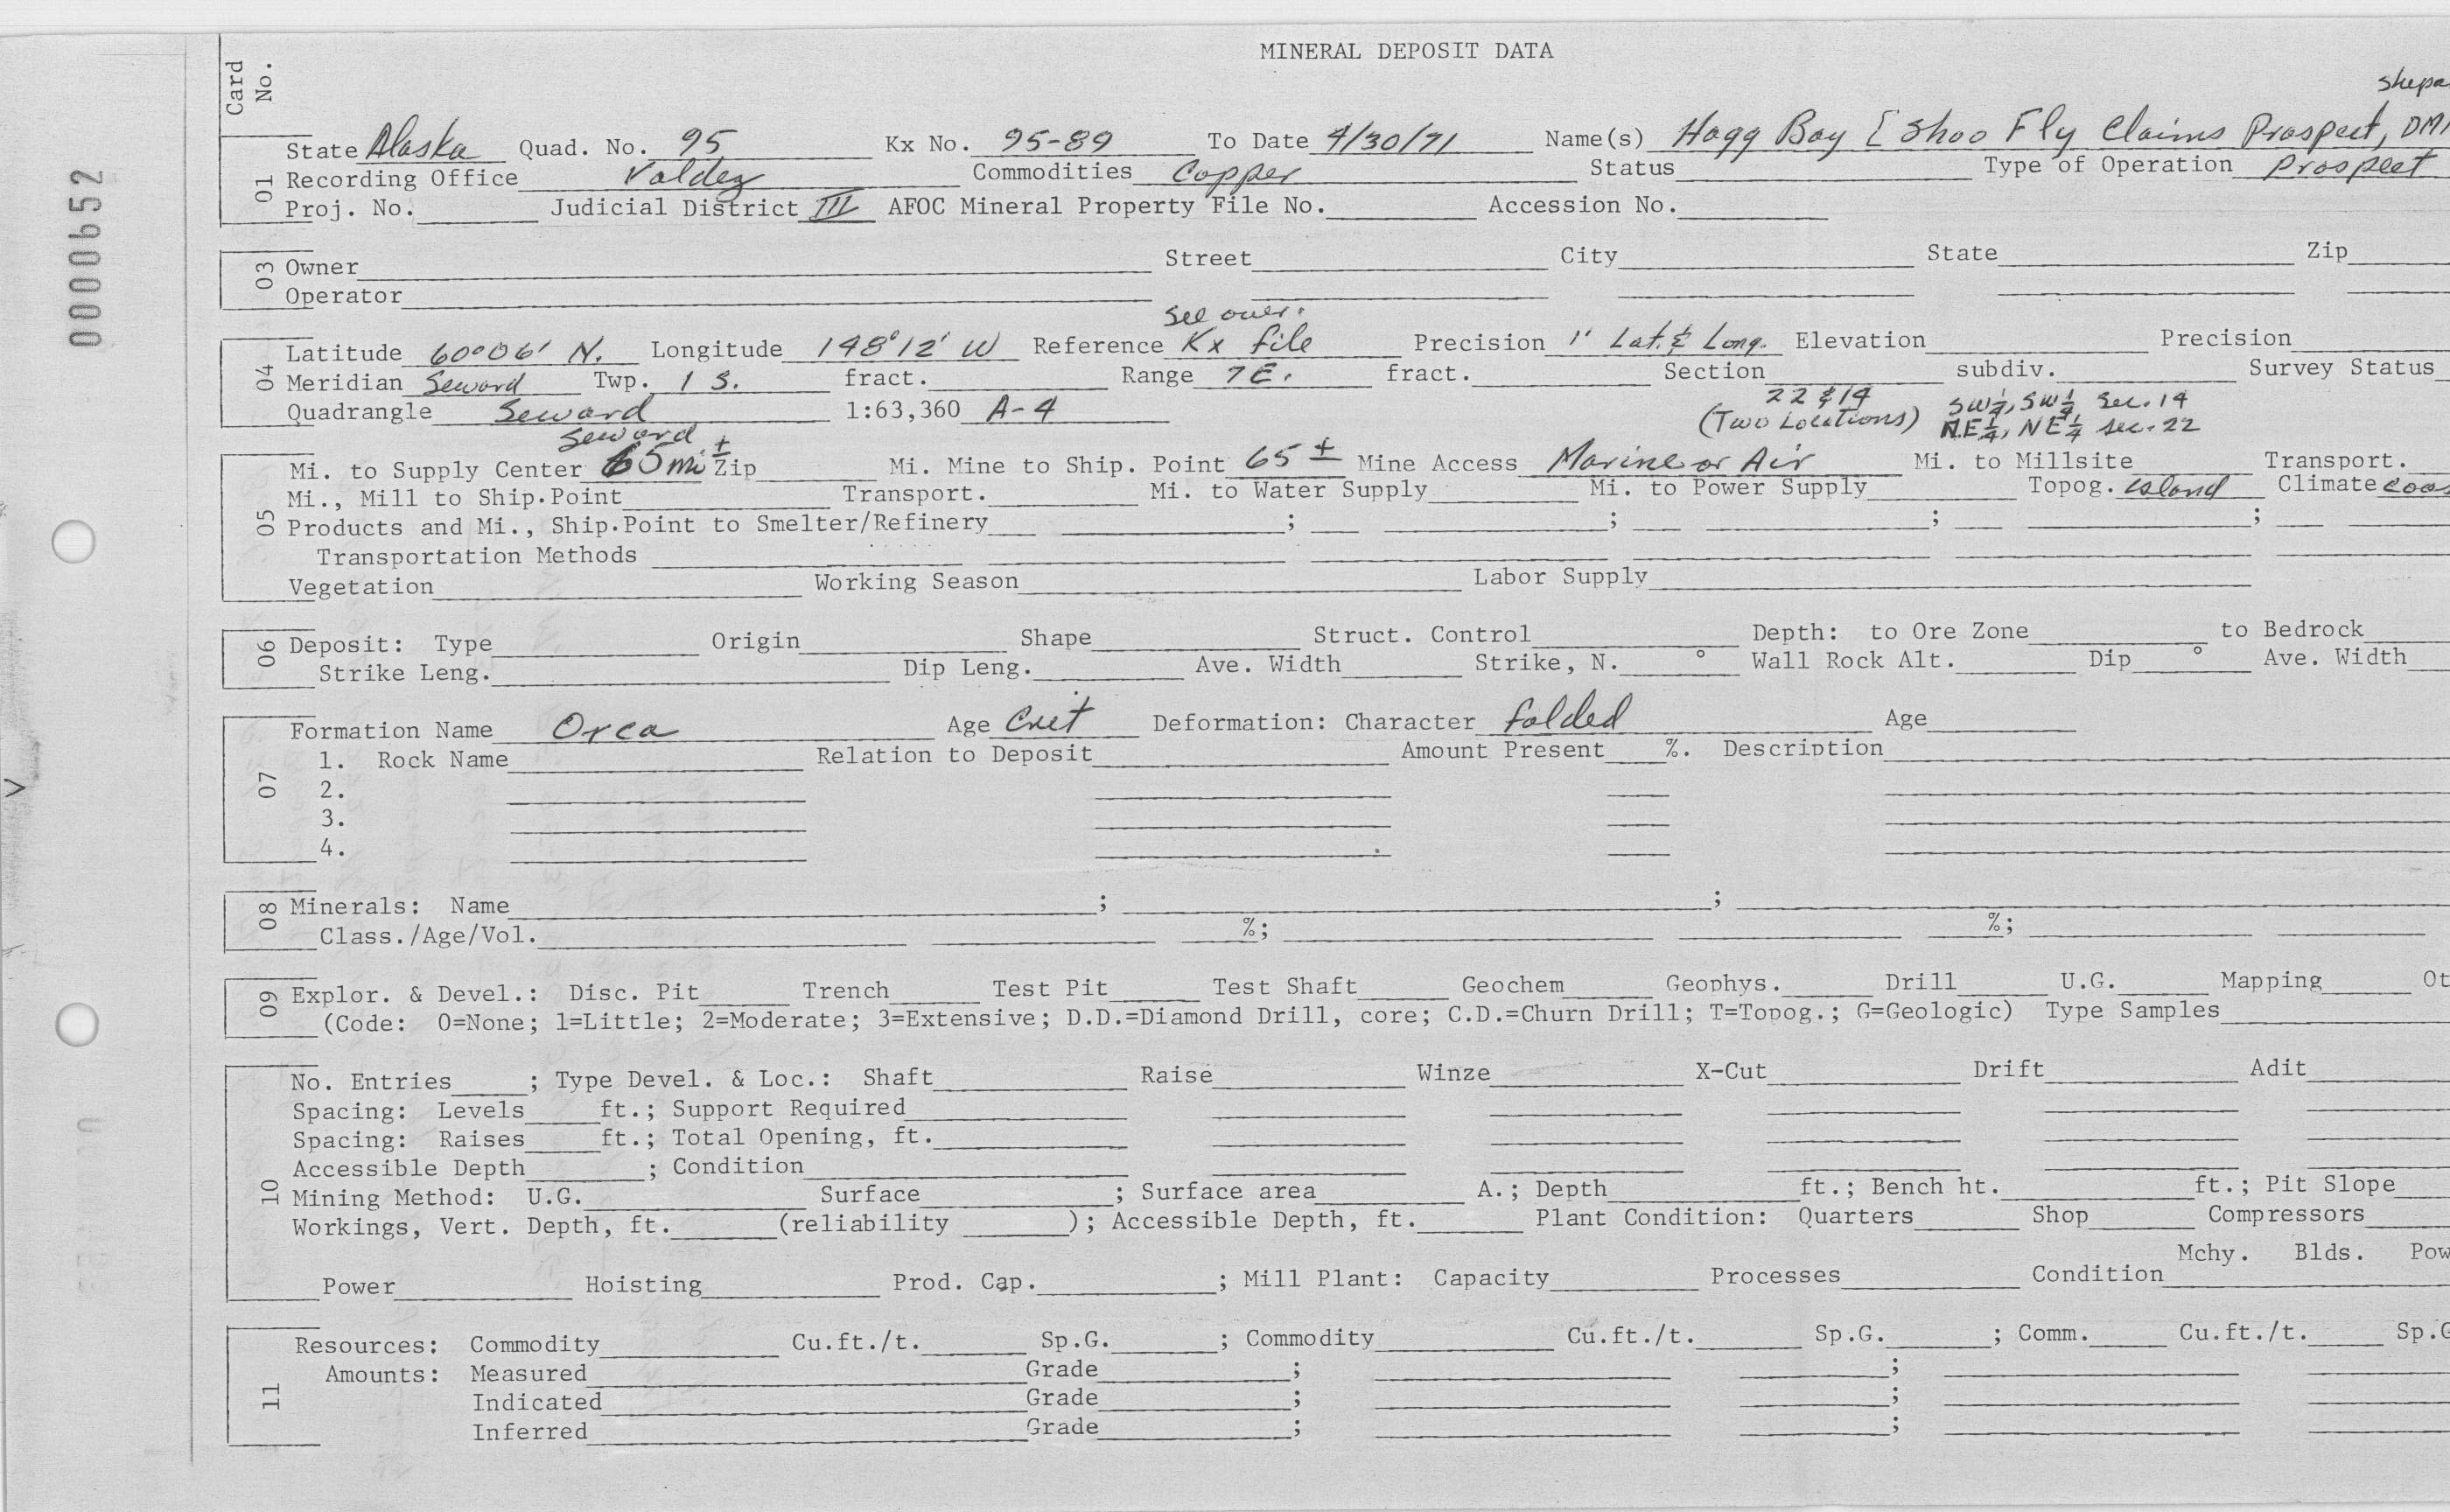 MINERAL DEPOSIT DATA
Card No.
0000652
01
State Alaska Quad. No. 95 Kx No. 95-89 To Date 4/30/71 Name(s) Hogg Bay [Shoo Fly Claims Prospect, DM
Recording Office Valdez Commodities Copper Status Type of Operation Prospect
Proj. No. Judicial District III AFOC Mineral Property File No. Accession No.
03
Owner Street City State Zip
Operator
See over.
04
Latitude 60°06' N. Longitude 148°12' W Reference Kx file Precision 1' Lat. & Long. Elevation Precision
Meridian Seward Twp. 1 S. fract. Range 7E. fract. Section 22 & 14 subdiv. Survey Status
(Two Locations) SW¼, SW¼ Sec. 14
N.E¼, NE¼ Sec. 22
Quadrangle Seward 1:63,360 A-4
Seward
05
Mi. to Supply Center 65 mi ± Zip Mi. Mine to Ship. Point 65 ± Mine Access Marine or Air Mi. to Millsite Transport.
Mi., Mill to Ship.Point Transport. Mi. to Water Supply Mi. to Power Supply Topog. island Climate
Products and Mi., Ship.Point to Smelter/Refinery ; ; ; ;
Transportation Methods
Vegetation Working Season Labor Supply
06
Deposit: Type Origin Shape Struct. Control Depth: to Ore Zone to Bedrock
Strike Leng. Dip Leng. Ave. Width Strike, N. ° Wall Rock Alt. Dip ° Ave. Width
07
Formation Name Orca Age Cret Deformation: Character folded Age
1. Rock Name Relation to Deposit Amount Present %. Description
2.
3.
4.
08
Minerals: Name ; ;
Class./Age/Vol. %; %;
09
Explor. & Devel.: Disc. Pit Trench Test Pit Test Shaft Geochem Geophys. Drill U.G. Mapping Ot
(Code: 0=None; 1=Little; 2=Moderate; 3=Extensive; D.D.=Diamond Drill, core; C.D.=Churn Drill; T=Topog.; G=Geologic) Type Samples
10
No. Entries ; Type Devel. & Loc.: Shaft Raise Winze X-Cut Drift Adit
Spacing: Levels ft.; Support Required
Spacing: Raises ft.; Total Opening, ft.
Accessible Depth ; Condition
Mining Method: U.G. Surface ; Surface area A.; Depth ft.; Bench ht. ft.; Pit Slope
Workings, Vert. Depth, ft. (reliability ); Accessible Depth, ft. Plant Condition: Quarters Shop Compressors
Mchy. Blds. Pow
Power Hoisting Prod. Cap. ; Mill Plant: Capacity Processes Condition
11
Resources: Commodity Cu.ft./t. Sp.G. ; Commodity Cu.ft./t. Sp.G. ; Comm. Cu.ft./t. Sp.G
Amounts: Measured Grade ; ;
Indicated Grade ; ;
Inferred Grade ; ;